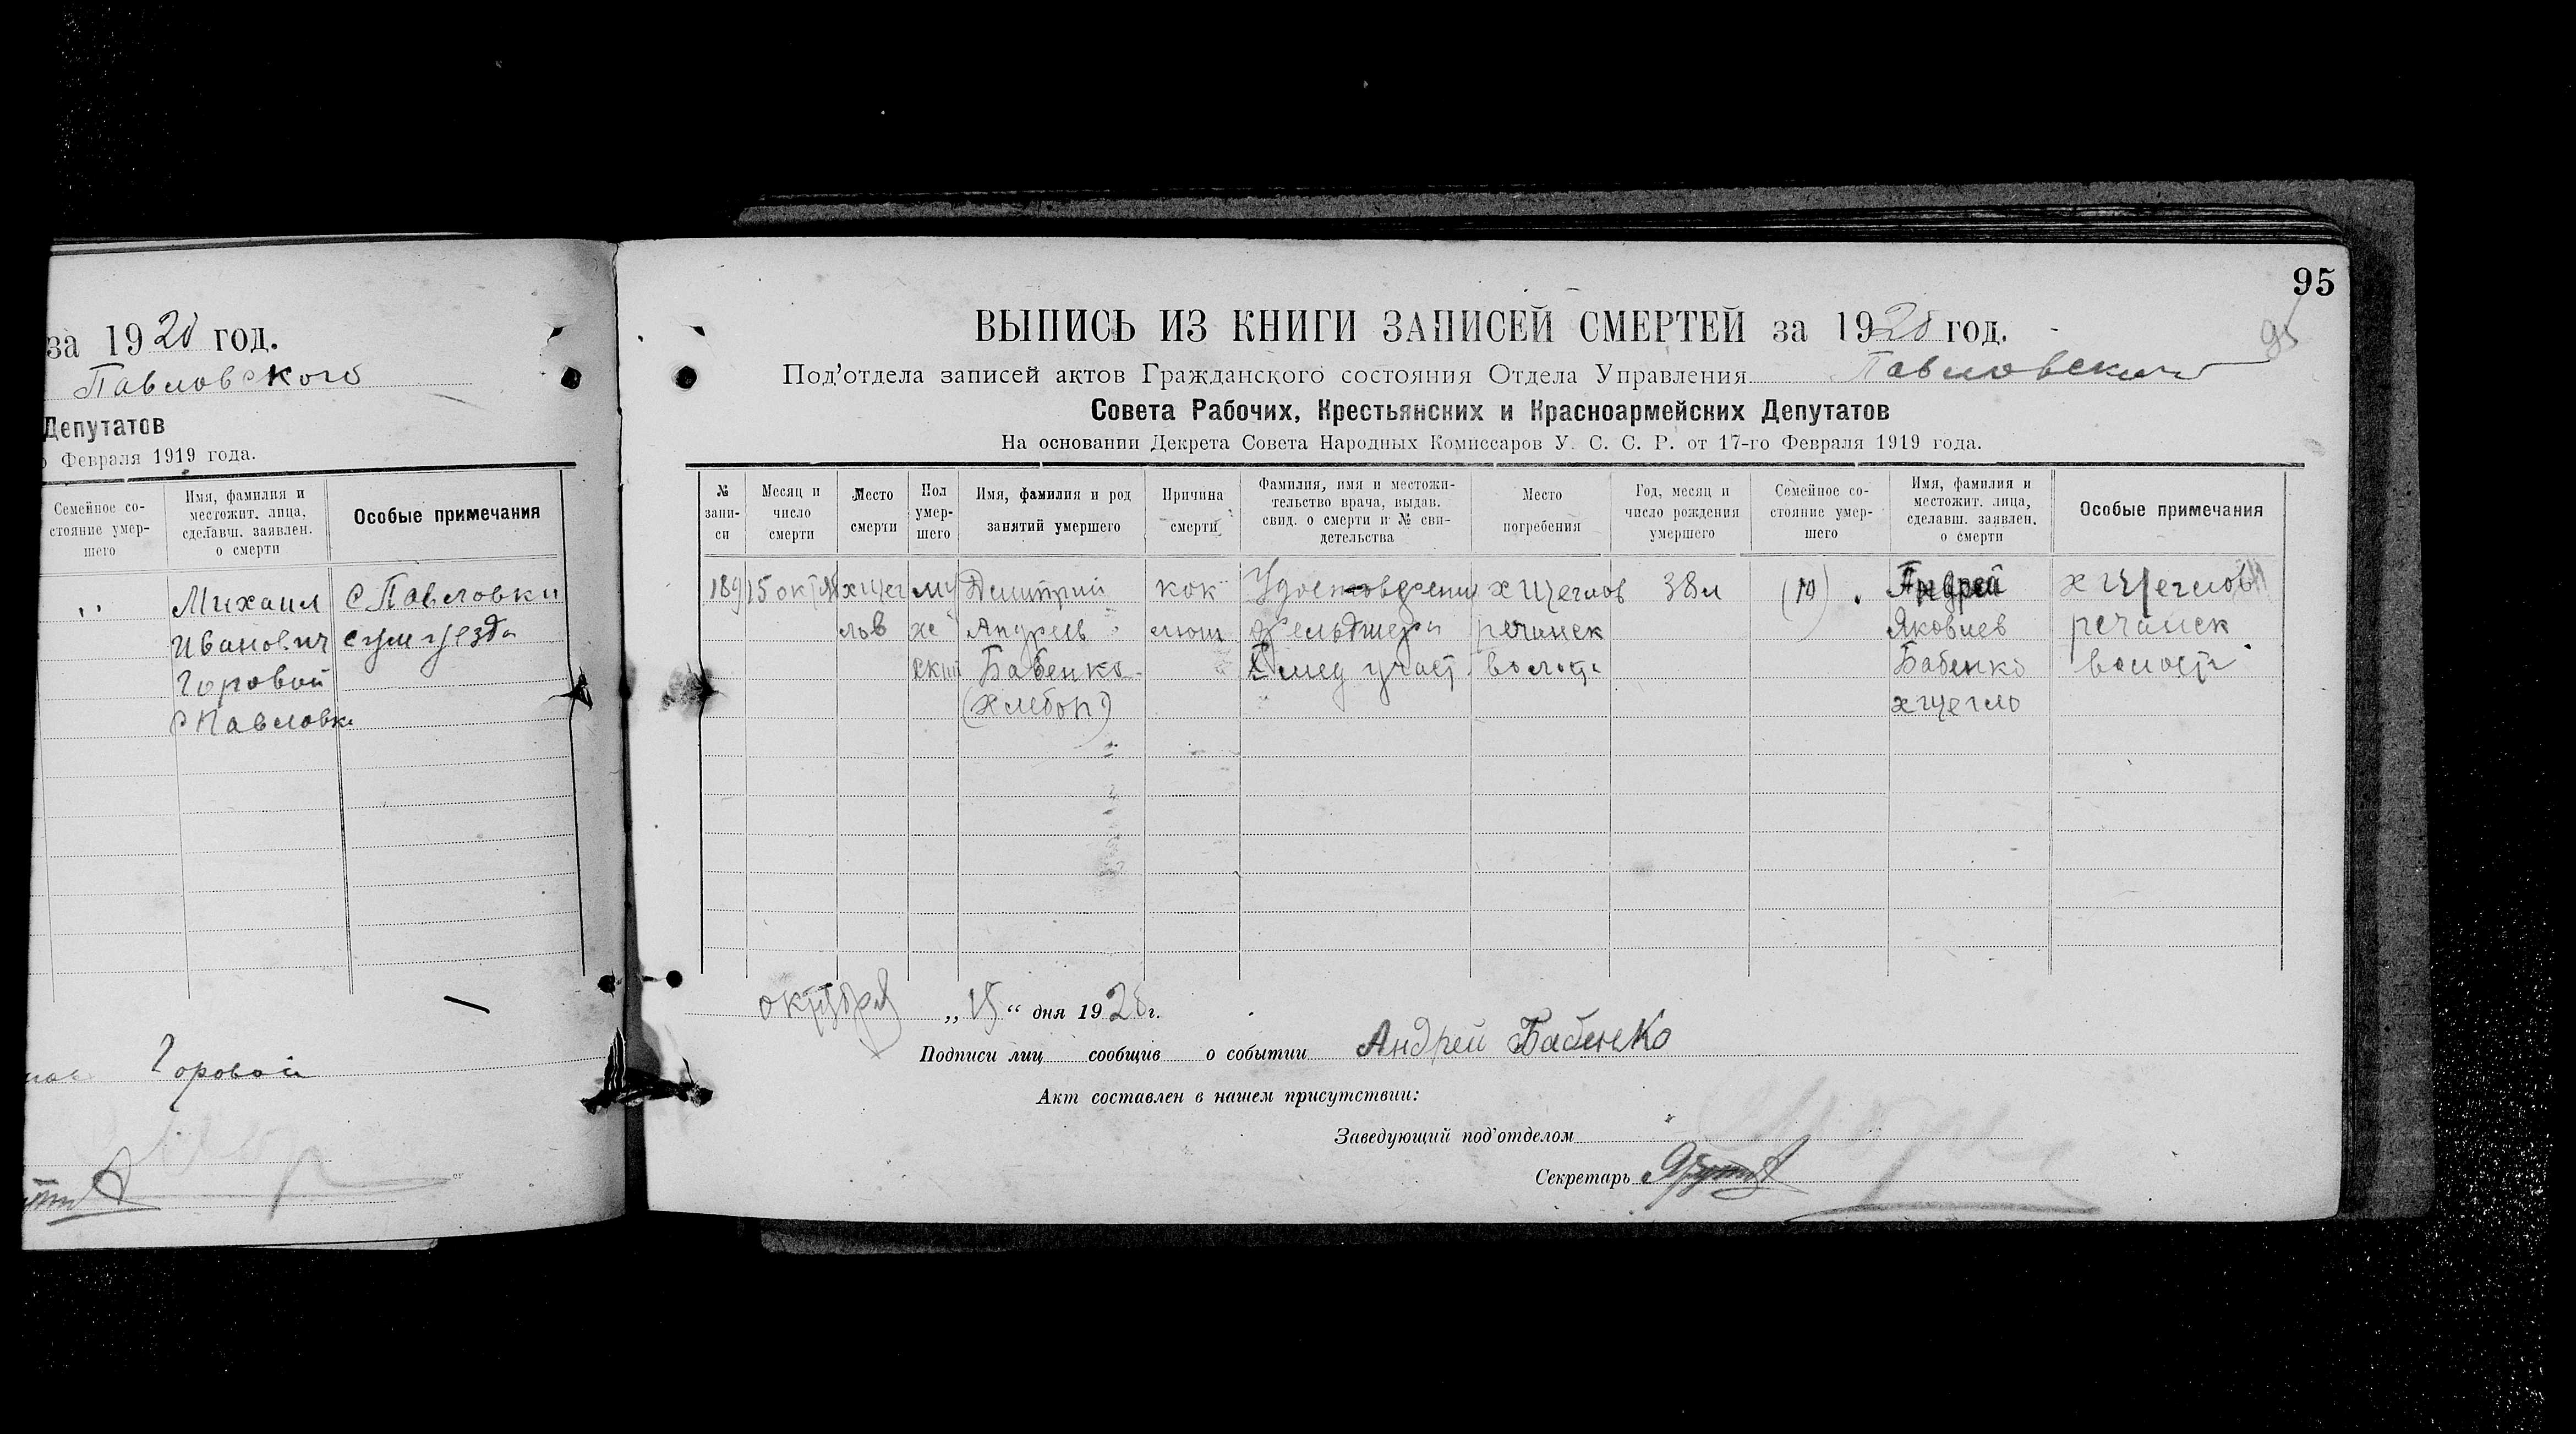 за 1920 год.
Павловского
Депутатов
Февраля 1919 года.
Семейное со-
стояние умер-
шего
Имя, фамилия и
местожит. лица,
сделавш. заявлен.
о смерти
Особые примечания
〃 Михаил С Павловки
Иванович сум уезда
Горовой
с Павловк
Горовой
95
95
ВЫПИСЬ ИЗ КНИГИ ЗАПИСЕЙ СМЕРТЕЙ за 1920 год.
Под’отдела записей актов Гражданского состояния Отдела Управления Павловского
Совета Рабочих, Крестьянских и Красноармейских Депутатов
На основании Декрета Совета Народных Комиссаров У. С. С. Р. от 17-го Февраля 1919 года.
№
запи-
си
Месяц и
число
смерти
Место
смерти
Пол
умер-
шего
Имя, фамилия и род
занятий умершего
Причина
смерти
Фамилия, имя и местожи-
тельство врача, выдав.
свид. о смерти и № сви-
детельства
Место
погребения
Год, месяц и
число рождения
умершего
Семейное со-
стояние умер-
шего
Имя, фамилия и
местожит. лица,
сделавш. заявлен.
о смерти
Особые примечания
189 15 октя х щег му Дмитрий кок х щеглов Андрей х Щеглов
лов же Андреев люш фельдшера речанск Яковлев речанск
ский Бабенко мед участ волост Бабенко волост
(хлебоп) х щегло
октября „15“ дня 1920 г.
Подписи лиц сообщив о событии Андрей Бабенко
Акт составлен в нашем присутствии:
Заведующий под’отделом
Секретарь